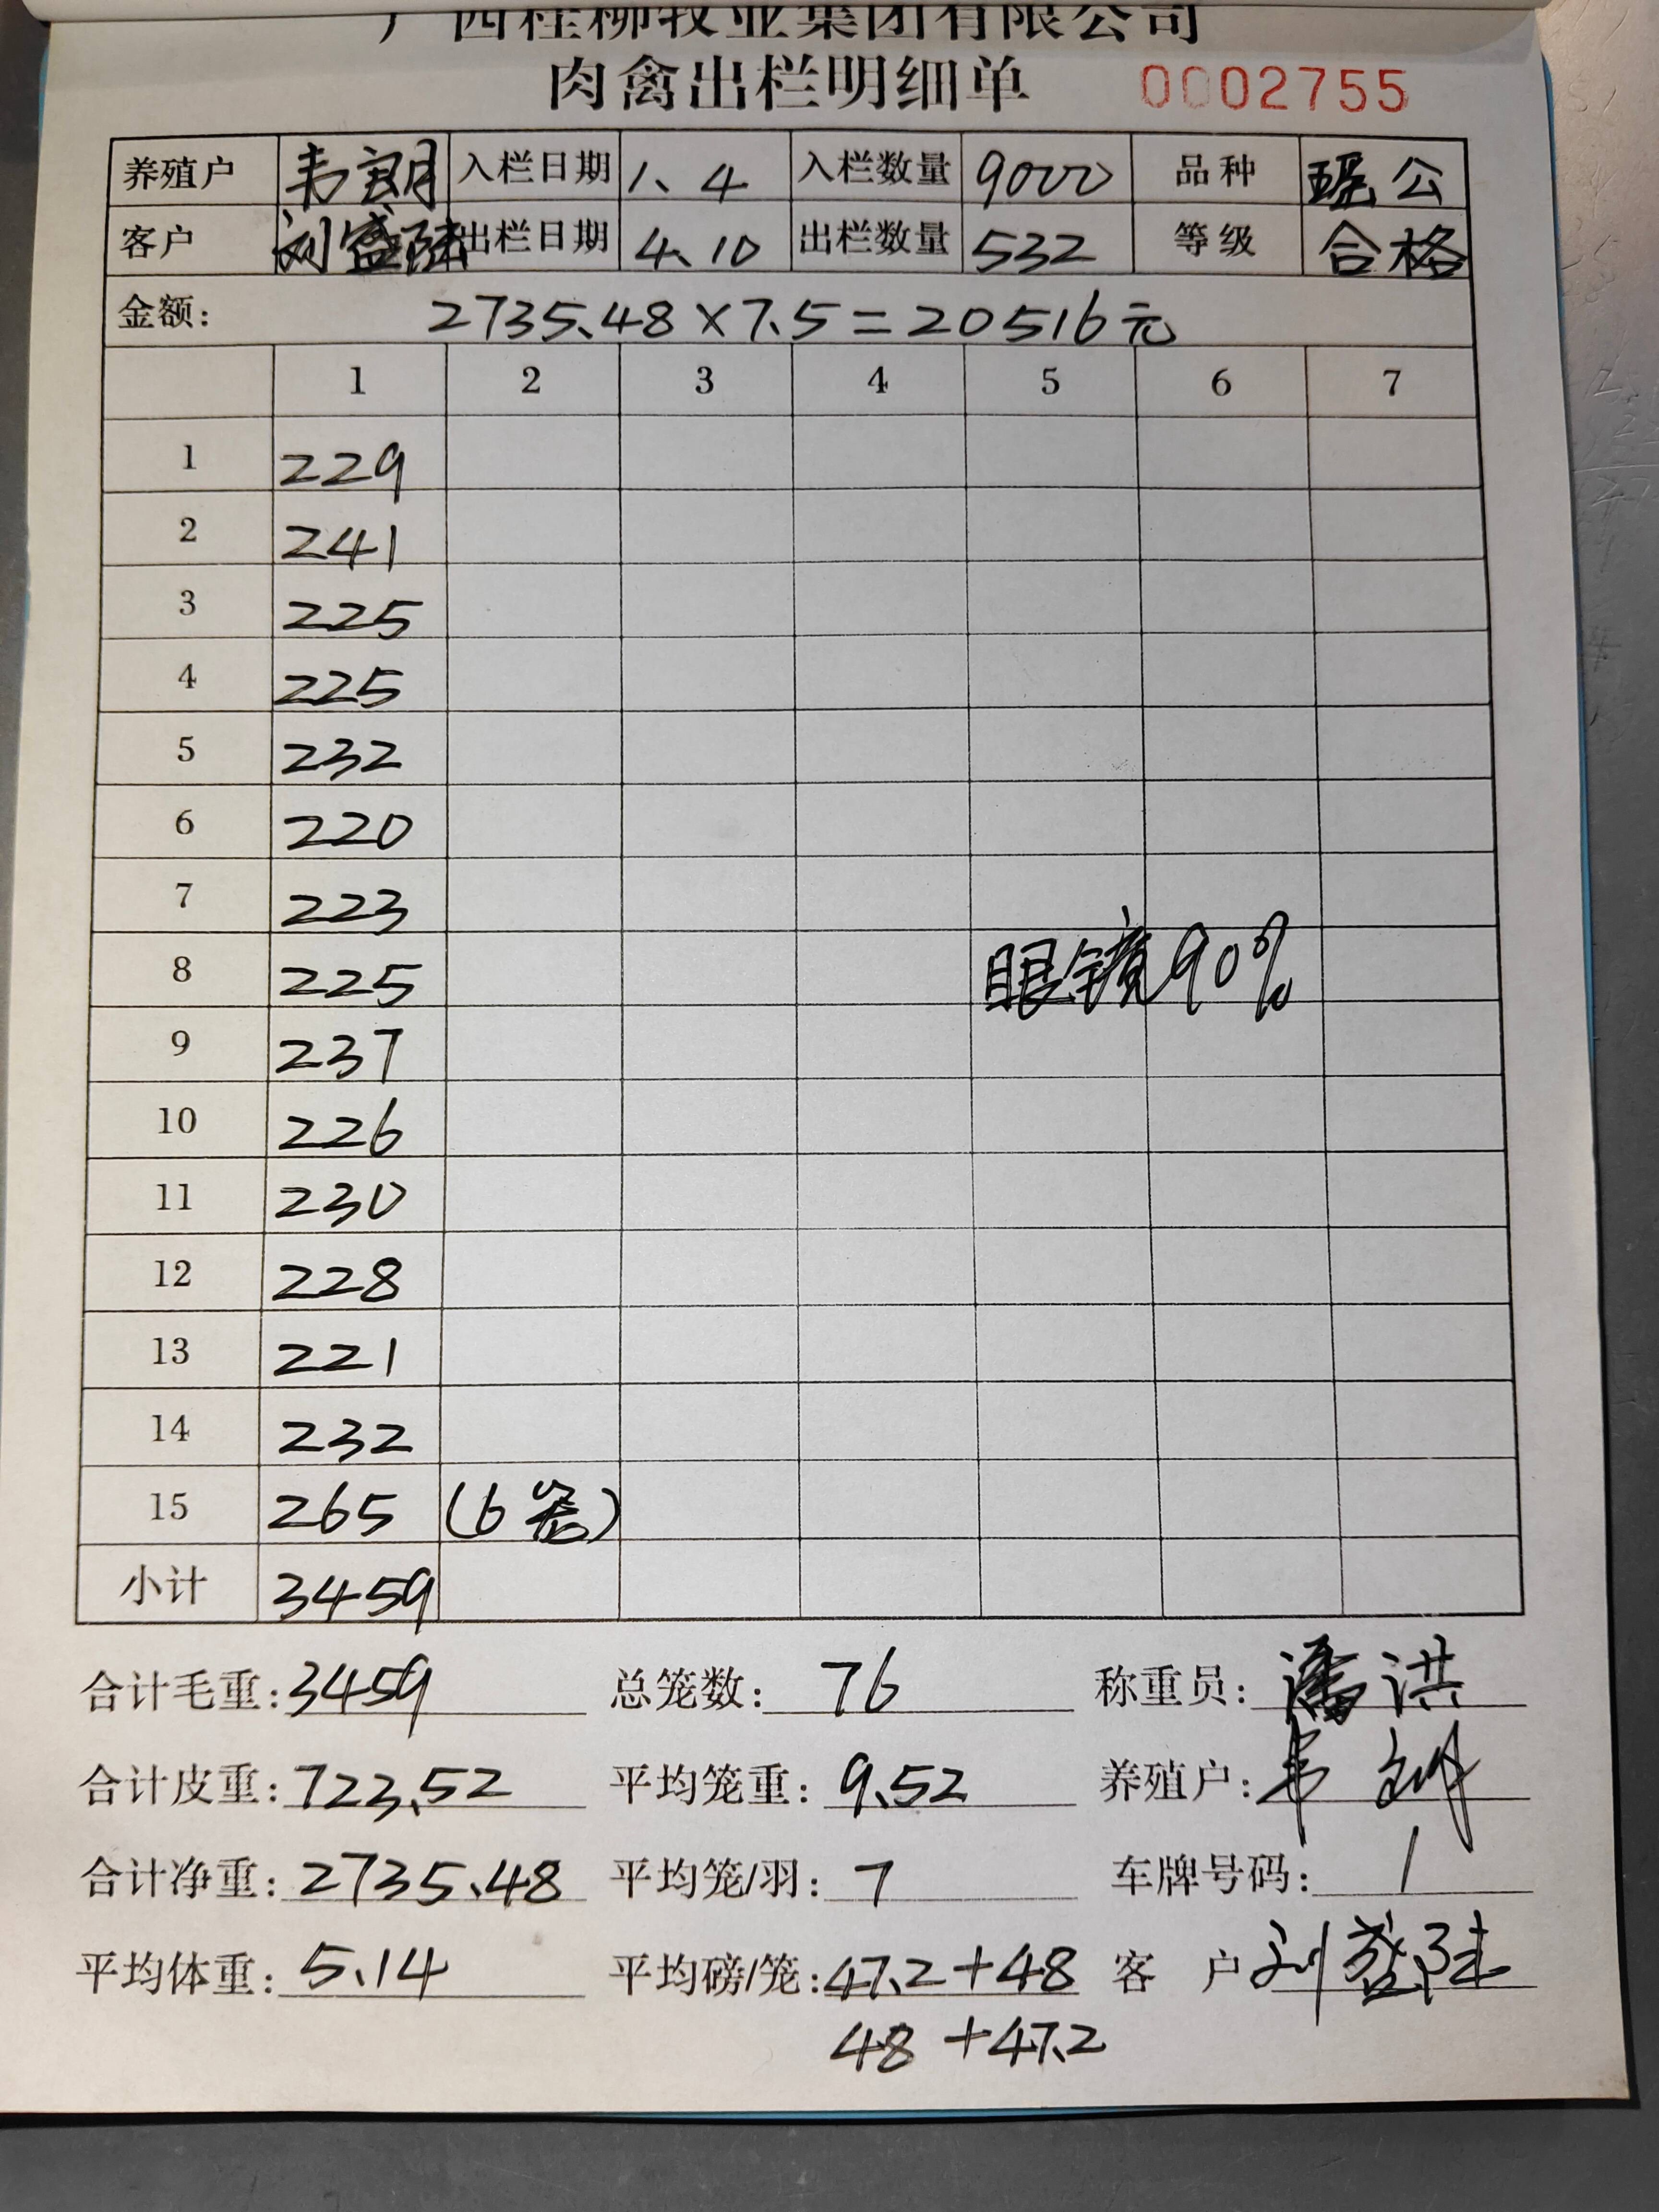 广西桂柳牧业集团有限公司
肉禽出栏明细单 0002755
养殖户 韦 入栏日期 1、4 入栏数量 9000 品种 瑶公
客户 刘盛陆 出栏日期 4、10 出栏数量 532 等级 合格
金额: 2735.48×7.5=20516元
1 2 3 4 5 6 7
1 229
2 241
3 225
4 225
5 232
6 220
7 223
8 225 眼镜90%
9 237
10 226
11 230
12 228
13 221
14 232
15 265 (6笼)
小计 3459
合计毛重: 3459 总笼数: 76 称重员: 潘洪
合计皮重: 723.52 平均笼重: 9.52 养殖户: 韦
合计净重: 2735.48 平均笼/羽: 7 车牌号码: /
平均体重: 5.14 平均磅/笼: 47.2+48 客 户 刘盛陆
48+47.2